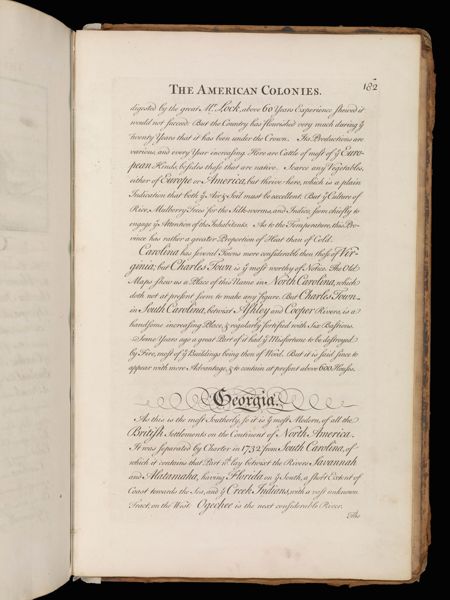 THE AMERICAN COLONIES.
182
digested by the great Mr. Lock, above 60 Years Experience shewed it
would not succeed. But the Country has flourished very much during ye
Twenty Years that it has been under the Crown. Its Productions are
various, and every Year increasing. Here are Cattle of most of ye Euro-
pean Kinds, besides those that are native. Scarce any Vegetables,
either of Europe or America, but thrive here, which is a plain
Indication that both ye Air & Soil must be excellent. But ye Culture of
Rice, Mulberry Trees for the Silk-worms, and Indico, seem chiefly to
engage ye Attention of the Inhabitants. As to the Temperature, this Pro-
vince has rather a greater Proportion of Heat than of Cold.
Carolina has several Towns more considerable then those of Vir-
ginia; but Charles Town is ye most worthy of Notice. The Old
Maps shew us a Place of this Name in North Carolina, which
doth not at present seem to make any figure. But Charles Town
in South Carolina, betwixt Ashley and Cooper Rivers, is a
handsome increasing Place, & regularly fortified with Six Bastions.
Some Years ago a great Part of it had ye Misfortune to be destroyed
by Fire, most of ye Buildings being then of Wood. But it is said since to
appear with more Advantage, & to contain at present above 600 Houses.
Georgia.
As this is the most Southerly, so it is ye most Modern, of all the
British Settlements on the Continent of North America.
It was separated by Charter in 1732 from South Carolina, of
which it contains that Part wch. lay betwixt the Rivers Savannah
and Alatamaha, having Florida on ye South, a short Extent of
Coast towards the Sea, and ye Creek Indians, with a vast unknown
Tract, on the West. Ogechee is the next considerable River.
The